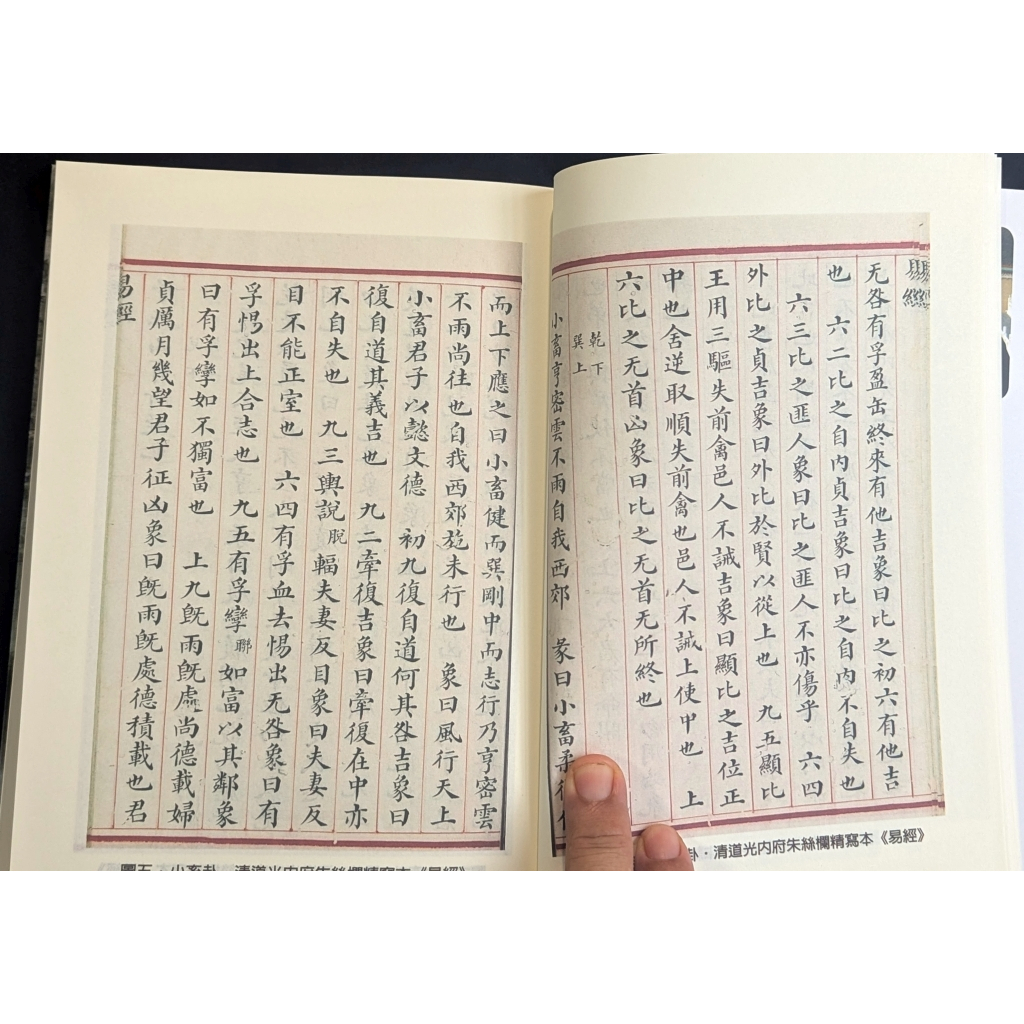 易經
无咎有孚盈缶終來有他吉象曰比之初六有他吉
也 六二比之自內貞吉象曰比之自內不自失也
六三比之匪人象曰比之匪人不亦傷乎 六四
外比之貞吉象曰外比於賢以從上也 九五顯比
王用三驅失前禽邑人不誡吉象曰顯比之吉位正
中也舍逆取順失前禽也邑人不誡上使中也 上
六比之无首凶象曰比之无首无所終也
乾下
巽上
小畜亨密雲不雨自我西郊 彖曰小畜柔得
卦·清道光內府朱絲欄精寫本《易經》
而上下應之曰小畜健而巽剛中而志行乃亨密雲
不雨尚往也自我西郊施未行也 象曰風行天上
小畜君子以懿文德 初九復自道何其咎吉象曰
復自道其義吉也 九二牽復吉象曰牽復在中亦
不自失也 九三輿說脫輻夫妻反目象曰夫妻反
目不能正室也 六四有孚血去惕出无咎象曰有
孚惕出上合志也 九五有孚攣聯如富以其鄰象
曰有孚攣如不獨富也 上九旣雨旣處尚德載婦
貞厲月幾望君子征凶象曰旣雨旣處德積載也君
易經
圖五·小畜卦·清道光內府朱絲欄精寫本《易經》